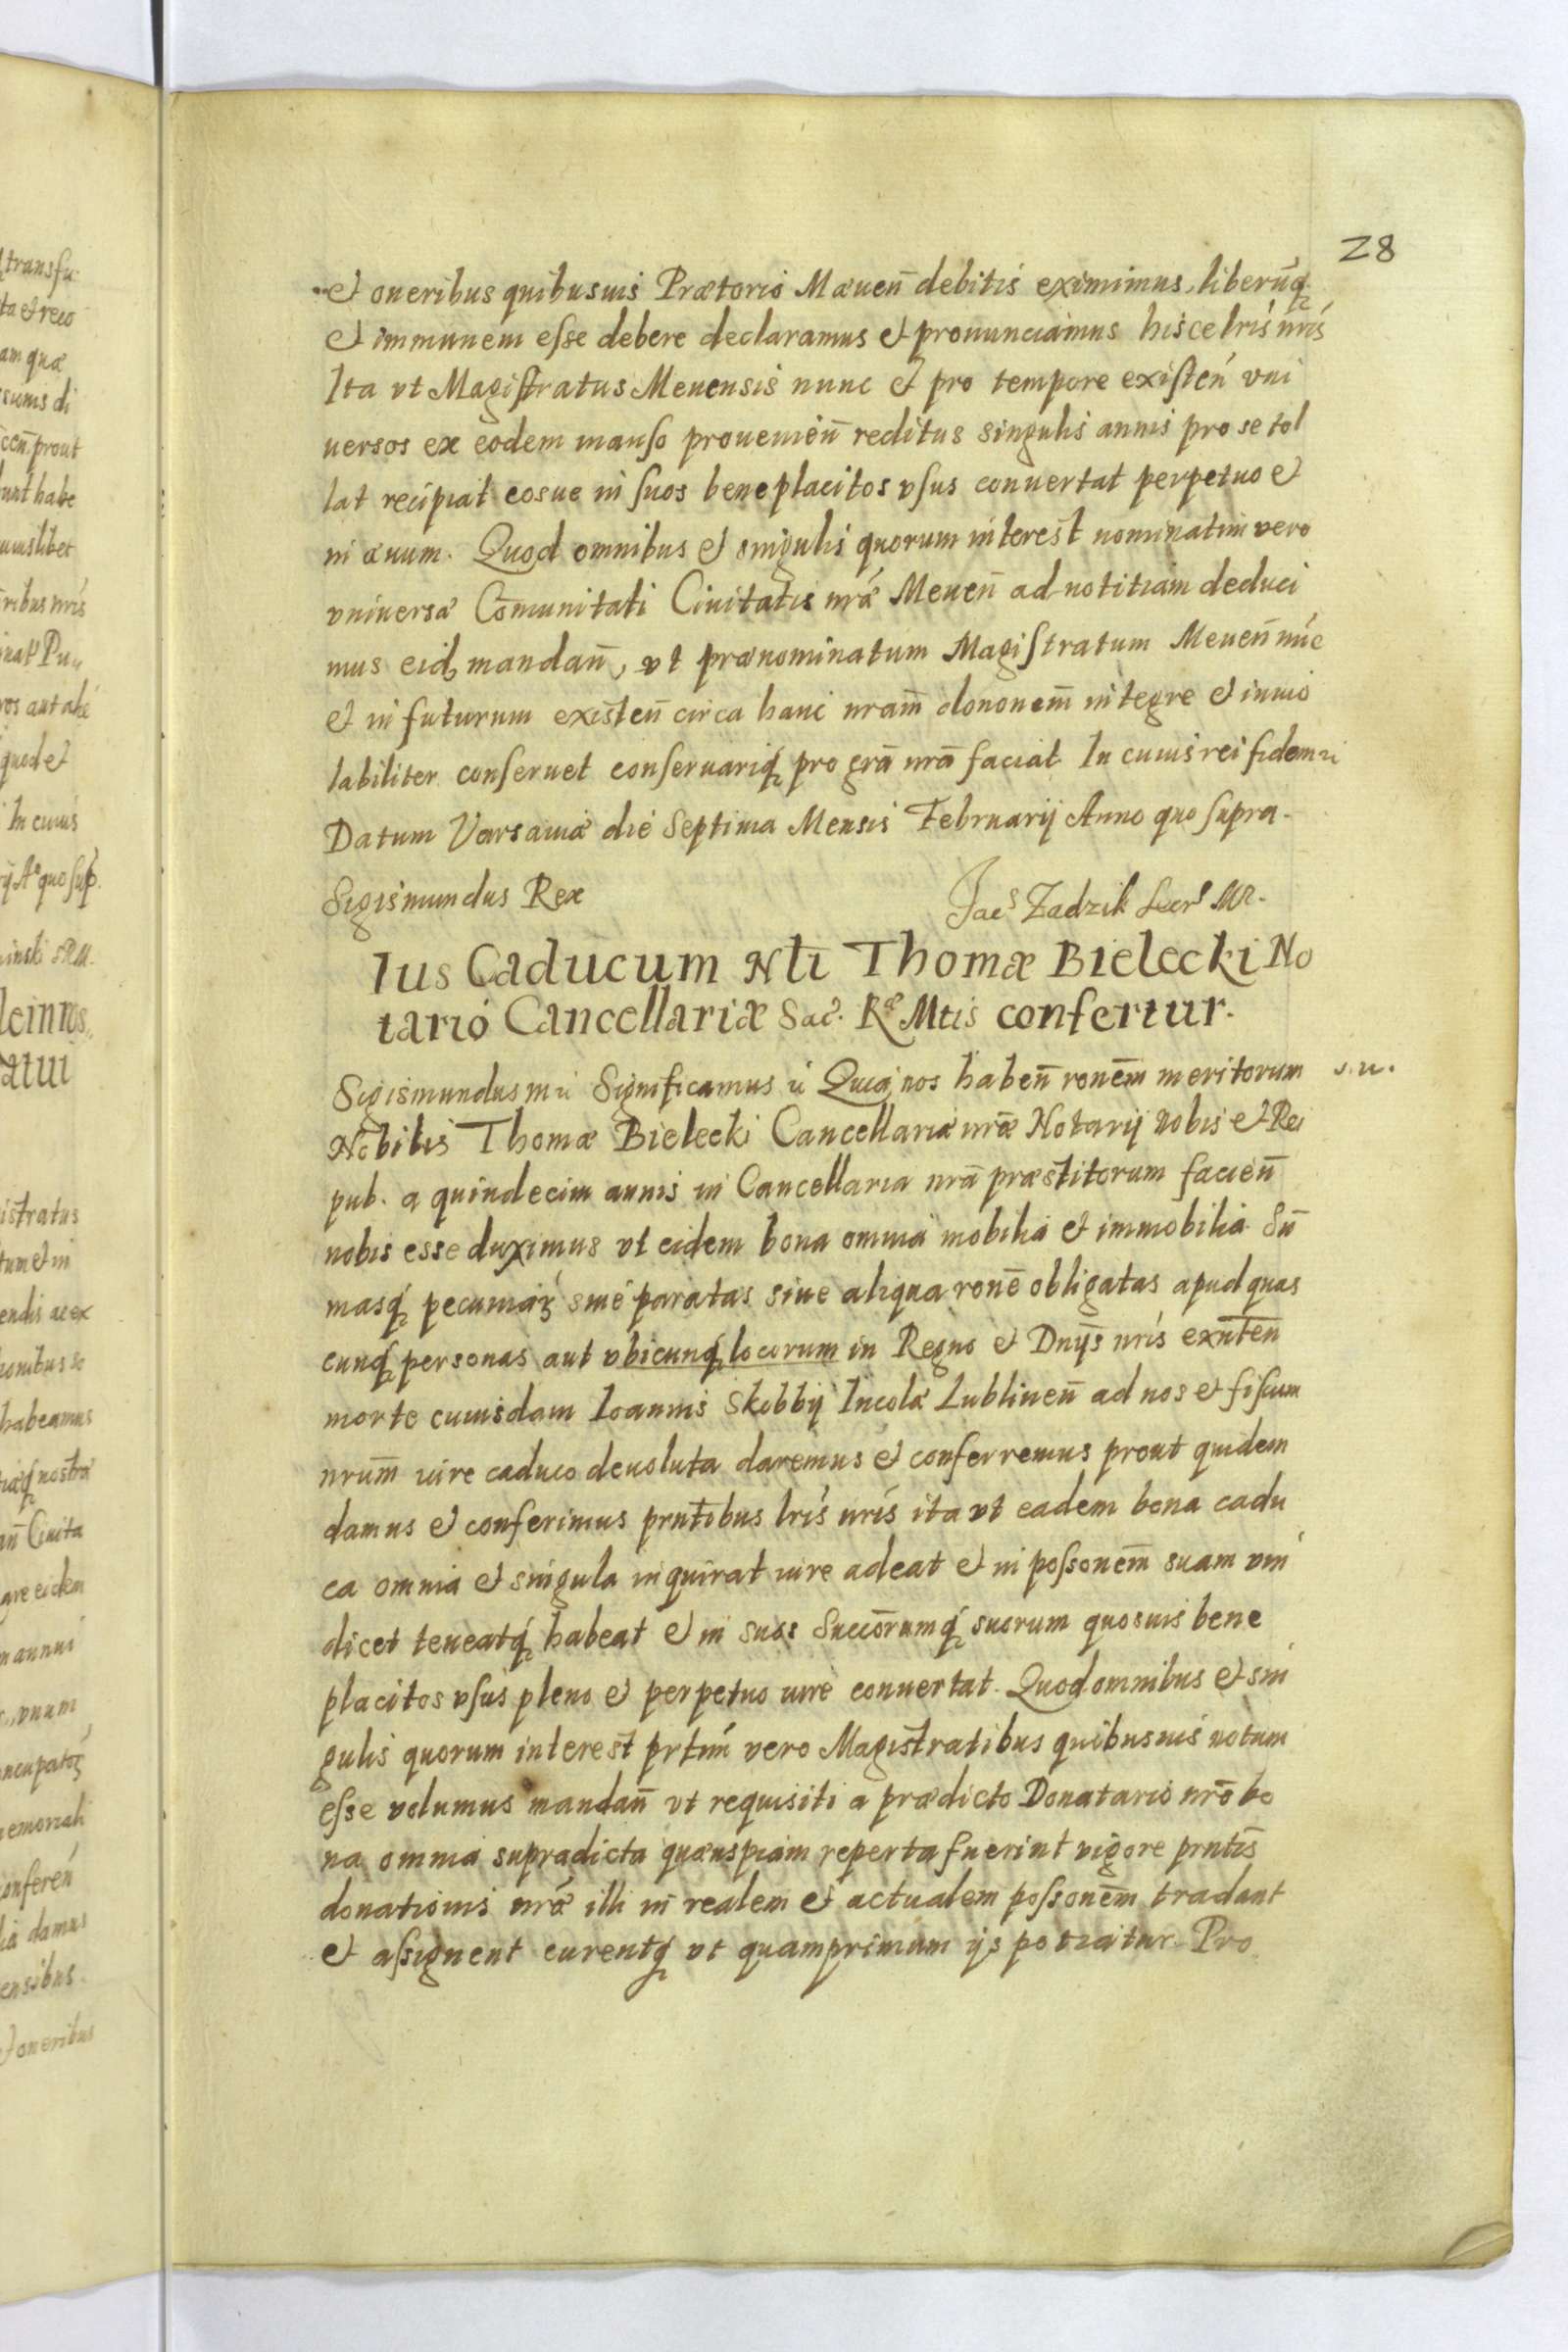 28
et oneribus quibusuis Prætorio Mæuen̄ debitis eximimus, liberūq́
et immunem esse debere declaramus et pronunciamus hisce lrīs nrīs
Ita vt Magistratus Meuensis nunc et pro tempore existen̄ vni
uersos ex eodem manso prouenien̄ reditus singulis annis pro se tol
lat recipiat eosue in suos beneplacitos vsus conuertat perpetuo et
in æuum. Quod omnibus et singulis quorum interest nominatim vero
vniversæ Com̄unitati Ciuitatis nr̄æ Meuen̄ ad notitiam deduci
mus eid, mandan̄, vt prænominatum Magistratum Meuen̄ nūc
et in futurum existen̄ circa hanc nram̄ dononem̄ integre et inuio
labiliter conseruet conseruariq́ pro grā nrā faciat In cuius rei fidem ii
Datum Varsauiæ die Septima Mensis Februarij Anno quo supra.
Sigismundus Rex
Jacs Zadzik Secrs MR.
Ius Caducum Nli Thomæ Bielecki No
tario Cancellariæ Sac. Ræ Mtis confertur.
Sigismundus m ii Significamus ii Quia nos haben̄ ronem̄ meritorum
s. n.
Nobilis Thomæ Bielecki Cancellariæ nr̄æ Notarij nobis et Rei
pub. a quindecim annis in Cancellaria nrā præstitorum facien̄
nobis esse duximus vt eidem bona omnia mobilia et immobilia Sū
masq́ pecuniaꝝ siue paratas siue aliqua ronē obligatas apud quas
cunq́ personas aut vbicunq́ locorum in Regno et Dnijs nrīs exn̄ten
morte cuiusdam Ioannis Skobbij Incolæ Lublinen̄ ad nos et fiscum
nrum̄ iure caduco deuoluta daremus et conferremus prout quidem
damus et conferimus prnt̄ibus lrīs nrīs ita vt eadem bona cadu
ca omnia et singula inquirat iure adeat et in possonem̄ suam vin
dicet teneatq́ habeat et in suos Succōrumq́ suorum quosuis bene
placitos vsus pleno et perpetuo iure conuertat. Quod omnibus et sin
gulis quorum interest prtim̄ vero Magistratibus quibusuis notum
esse volumus mandan̄ vt requisiti a prædicto Donatario nrō bo
na omnia supradicta quæuspiam reperta fuerint vigore prntīs
donationis nr̄æ illi in realem et actualem possonem̄ tradant
et assignent curentq́ vt quamprimum ijs potiatur Pro